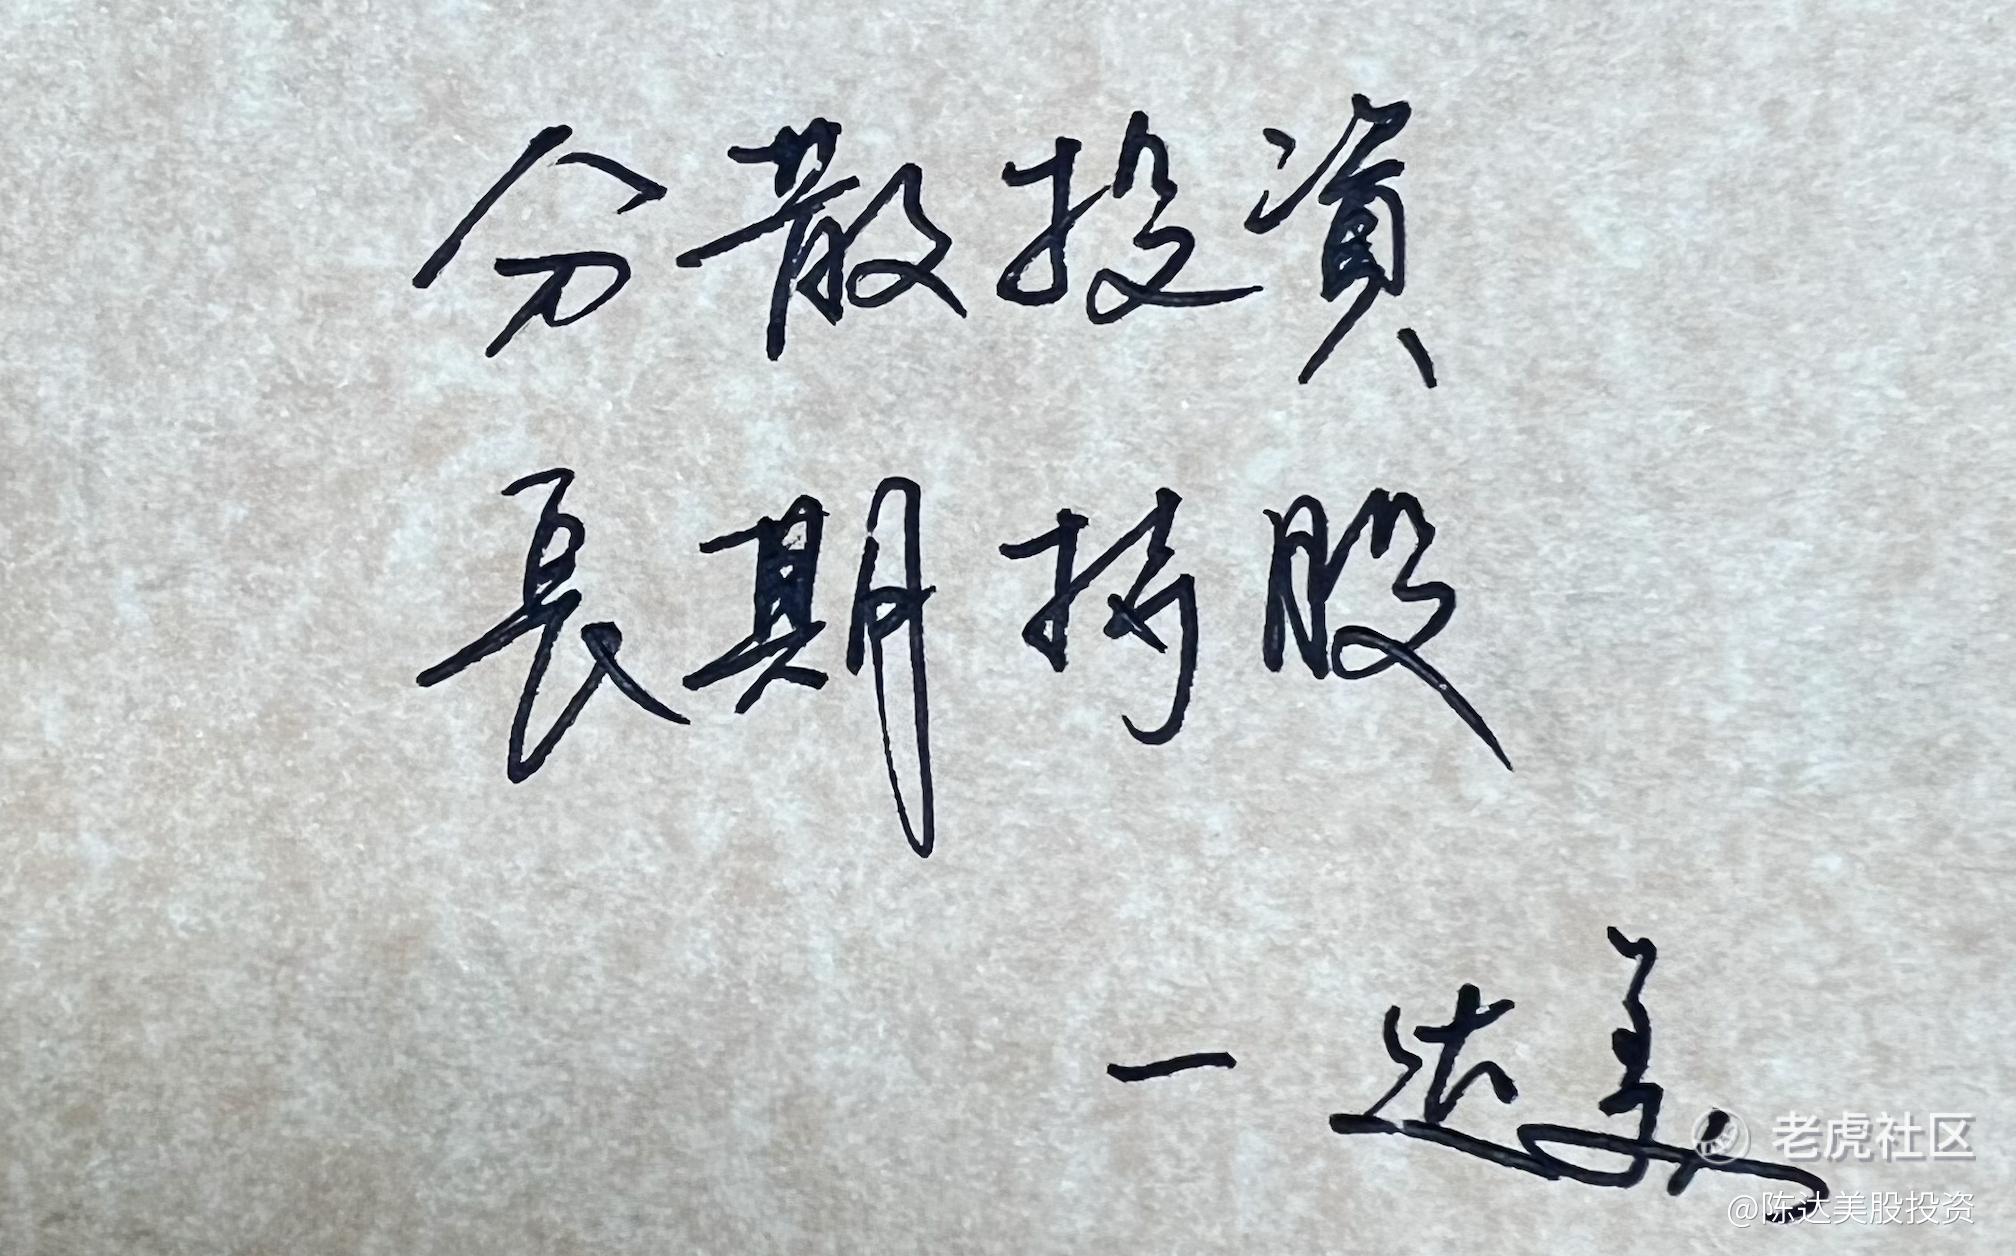 分散投資
長期持股
一 达美
老虎社区
@陈达美股投资